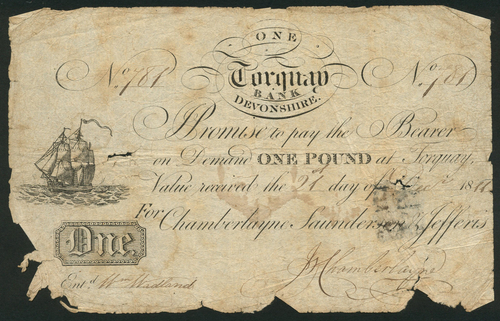 ONE
No. 781 Torquay No. 781
BANK
DEVONSHIRE.
I Promise to pay the Bearer
on Demand ONE POUND at Torquay,
Value received the 2d day of 18
For Chamberlayne Saunders & Jefferis
One.
J Chamberlayne
Entd. Wm Wadland